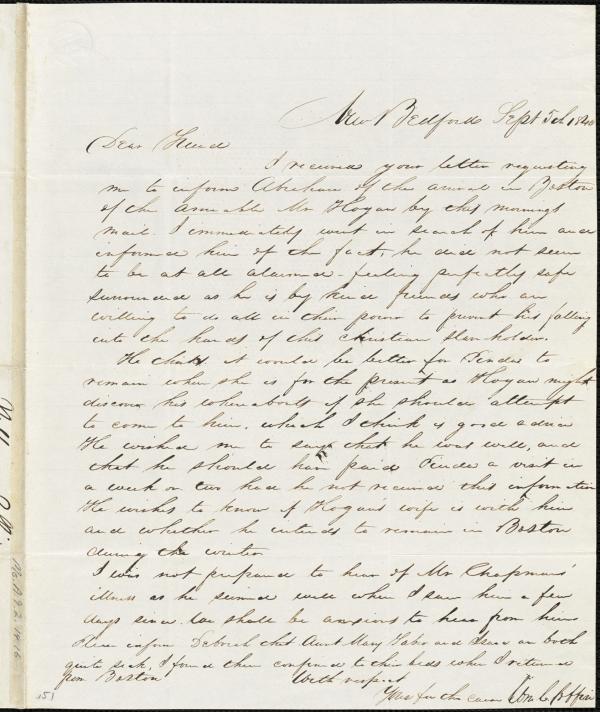 New Bedford Sept 5th 1840
Dear Friend
I received your letter requesting
me to inform Abraham of the arrival in Boston
of the amiable Mr Hogan by this mornings
mail. I immediately went in search of him and
informed him of the fact, he did not seem
to be at all alarmed - feeling perfectly safe
surrounded as he is by kind friends who are
willing to do all in their power to prevent his falling
into the hands of this christian slaveholder.
He thinks it would be better for Linda to
remain where she is for the present as Hogan might
discover his whereabouts if she should attempt
to come to him, which I think is good advice
He wished me to say that he was well, and
that he should have paid Linda a visit in
a week or two had he not received this information
He wishes to know if Hogans wife is with him
and whether he intends to remain in Boston
during the winter
I was not prepared to hear of Mr Chapmans'
illness as he seemed well when I saw him a few
days since. We shall be anxious to hear from him
Please inform Deborah that Aunt Mary and are both
quite sick, I found them confined to their beds when I returned
from Boston
With respect
Yours for the cause Wm C. Coffin
151